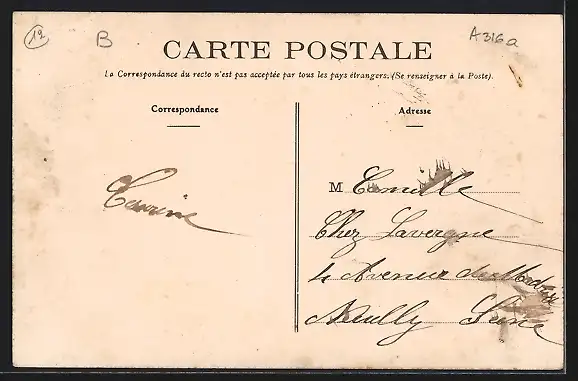 12
B
A316a
CARTE POSTALE
La Correspondance du recto n'est pas acceptée par tous les pays étrangers. (Se renseigner à la Poste).
Correspondance
Adresse
M Camille
Chez Lavergne
4 Avenue de Madrid
Neuilly Seine